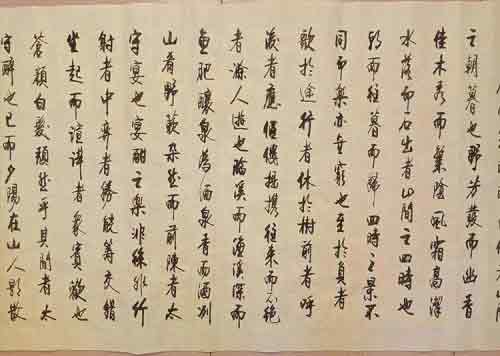 之朝暮也野芳發而幽香
佳木秀而繁陰風霜高潔
水落而石出者山間之四時也
朝而往暮而歸四時之景不
同而樂亦無窮也至於負者
歌於途行者休於樹前者呼
後者應傴僂提攜往來而不絕
者滁人遊也臨溪而漁溪深而
魚肥釀泉為酒泉香而酒冽
山肴野蔌雜然而前陳者太
守宴也宴酣之樂非絲非竹
射者中弈者勝觥籌交錯
坐起而諠譁者眾賓歡也
蒼顏白髮頹然乎其間者太
守醉也已而夕陽在山人影散